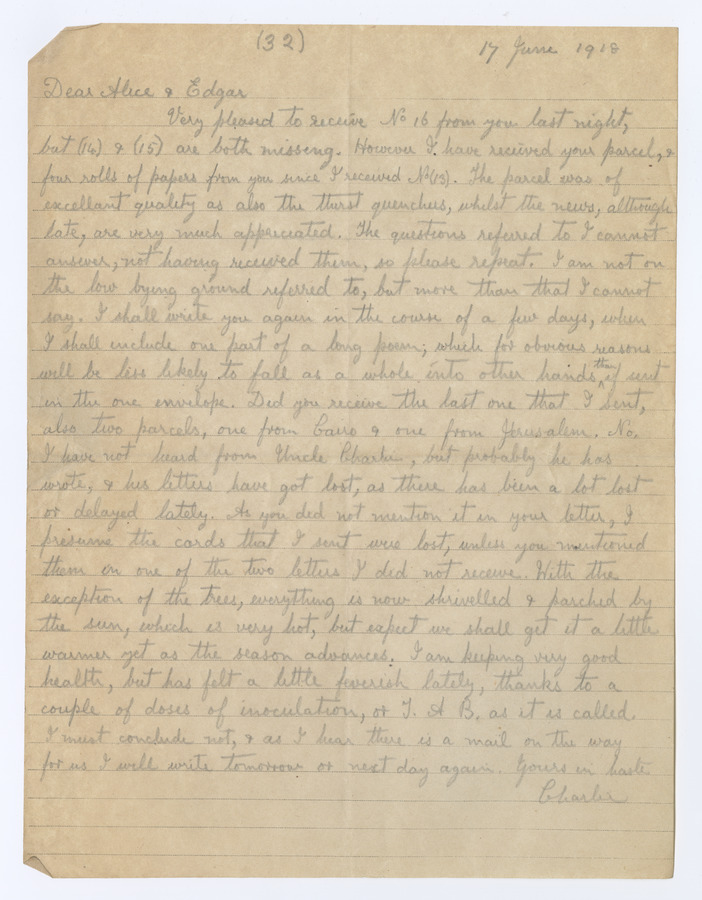 (32)
17 June 1918
Dear Alice & Edgar
Very pleased to receive No 16 from you last night,
but (14) & (15) are both missing. However I have received your parcel, &
four rolls of papers from you since I received No (13). The parcel was of
excellant quality as also the thirst quenchers, whilst the news, although
late, are very much appreciated. The questions referred to I cannot
answer, not having received them, so please repeat. I am not on
the low lying ground referred to, but more than that I cannot
say. I shall write you again in the course of a few days, when
I shall include one part of a long poem; which for obvious reasons
will be less likely to fall as a whole into other hands than if sent
in the one envelope. Did you receive the last one that I sent,
also two parcels, one from Cairo & one from Jerusalem. No.
I have not heard from Uncle Charlie, but probably he has
wrote, & his letters have got lost, as there has been a lot lost
or delayed lately. As you did not mention it in your letter, I
presume the cards that I sent were lost, unless you mentioned
them in one of the two letters I did not receive. With the
exception of the trees, everything is now shrivelled & parched by
the sun, which is very hot, but expect we shall get it a little
warmer yet as the season advances. I am keeping very good
health, but has felt a little feverish lately, thanks to a
couple of doses of inoculation, or T. A B. as it is called.
I must conclude not, & as I hear there is a mail on the way
for us I will write tomorrow or next day again. Yours in haste
Charlie